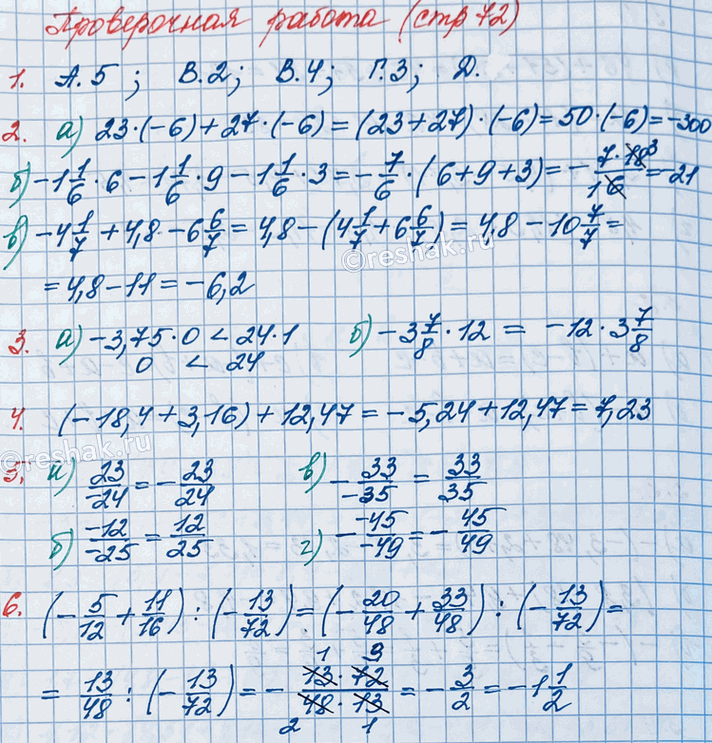 Проверочная работа (стр 72)
1. А. 5 ; В. 2; В. 4; Г. 3; Д.
2. а) 23·(-6)+27·(-6)=(23+27)·(-6)=50·(-6)=-300
б) -1 1/6·6-1 1/6·9-1 1/6·3=-7/6·(6+9+3)=-(7·18 3)/(1 6)=-21
в) -4 1/7+4,8-6 6/7=4,8-(4 1/7+6 6/7)=4,8-10 7/7=
=4,8-11=-6,2
3. а) -3,75·0<24·1 б) -3 7/8·12 = -12·3 7/8
0 < 24
4. (-18,4+3,16)+12,47=-5,24+12,47=7,23
5. а) 23/-24=-23/24 в) -33/-35=33/35
б) -12/-25=12/25 г) - -45/-49=-45/49
6. (-5/12+11/16):(-13/72)=(-20/48+33/48):(-13/72)=
=13/48:(-13/72)=-(1 13·72 3)/(2 48·13 1)=-3/2=-1 1/2
©reshak.ru
©reshak.ru